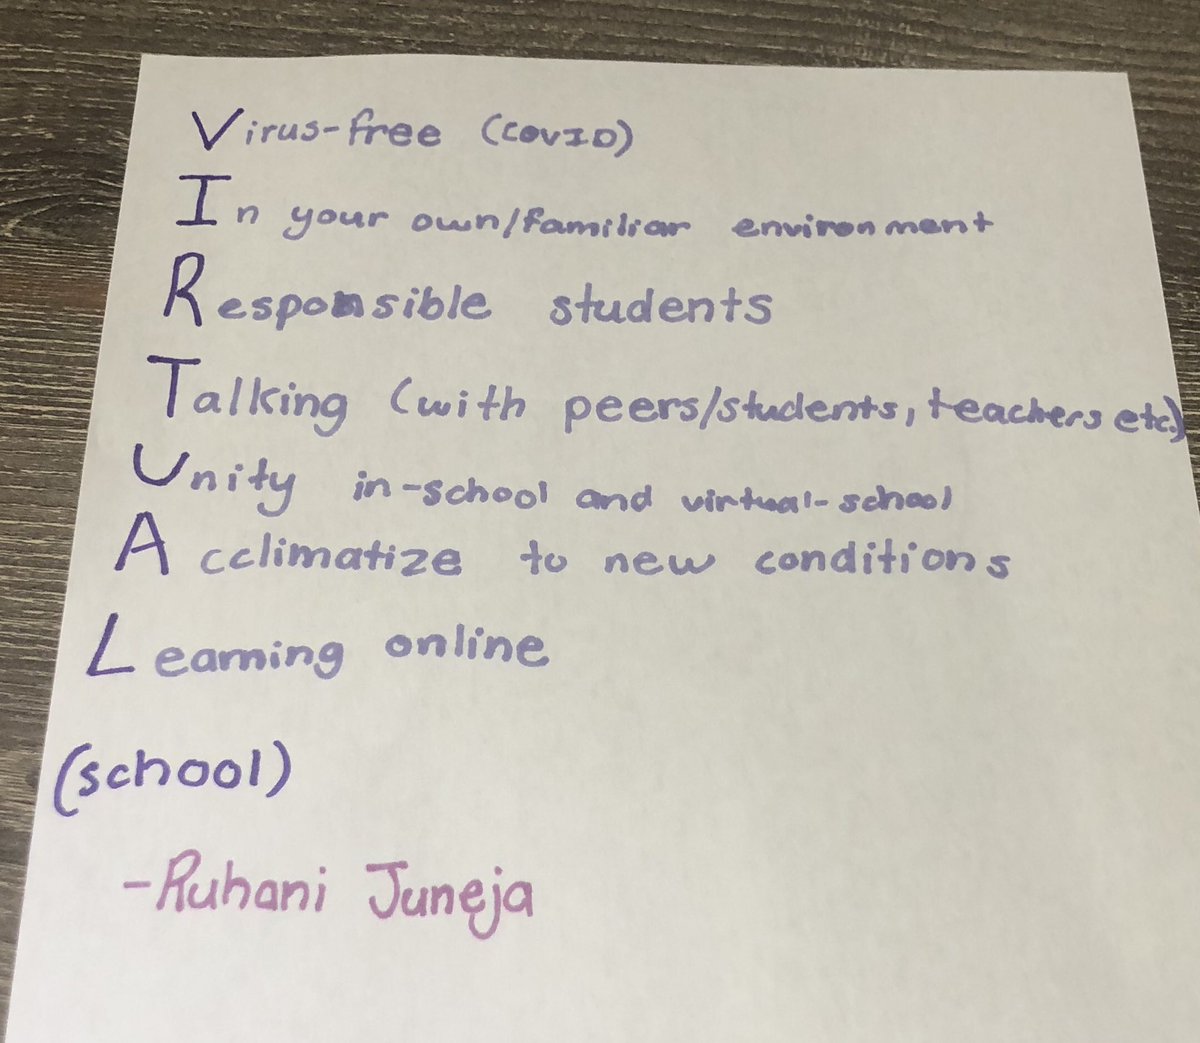 Virus-free (COVID)
In your own/familiar environment
Responsible students
Talking (with peers/students, teachers etc.)
Unity in-school and virtual-school
Acclimatize to new conditions
Learning online
(school)
-Ruhani Juneja